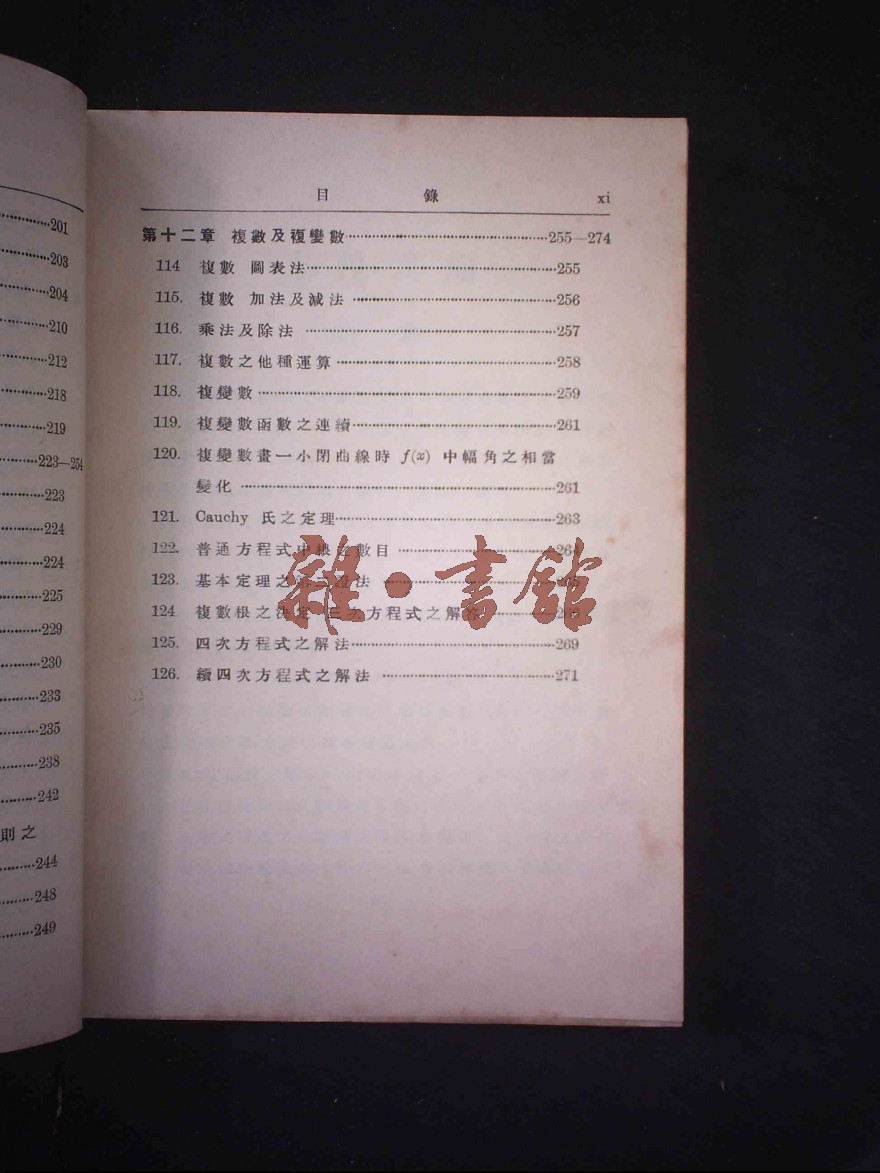 201
203
204
210
212
218
219
223—254
223
224
224
225
229
230
233
235
238
242
則之
244
248
249
目 錄 xi
第十二章 複數及複變數……255—274
114 複數 圖表法……255
115. 複數 加法及減法……256
116. 乘法及除法……257
117. 複數之他種運算……258
118. 複變數……259
119. 複變數函數之連續……261
120. 複變數畫一小閉曲線時 f(x) 中幅角之相當
變化……261
121. Cauchy 氏之定理……263
122. 普通方程式中根之數目……264
123. 基本定理之 證法……
124 複數根之決定 三次方程式之解法……
125. 四次方程式之解法……269
126. 續四次方程式之解法……271
雜·書館